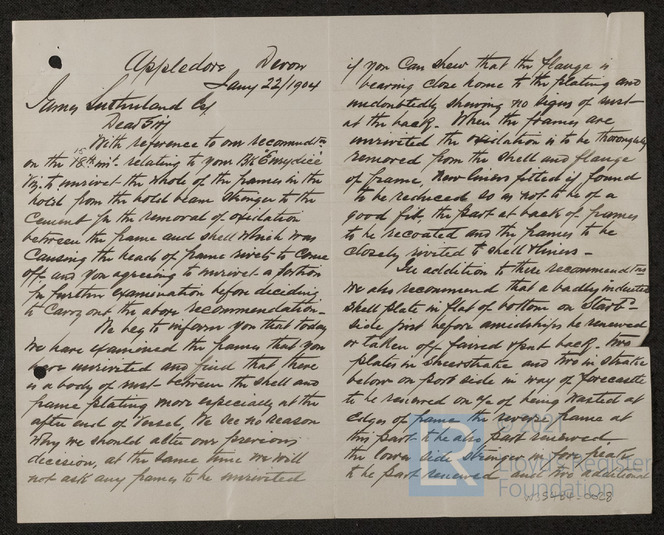 Appledore Devon
Jany 22/1904
James Sutherland Esq
Dear Sir,
With reference to our recommdtn
on the 18th inst. relating to your Bk Eurydice
Viz. to unrivet the whole of the frames in the
hold from the hold beam stringer to the
Cement for the removal of oxidation
between the frame and shell which was
Causing the heads of frame rivets to Come
off and you agreeing to unrivet a portion
for further examination before deciding
to Carry out the above recommendation.
We beg to inform you that today
We have examined the frames that you
have unriveted and find that there
is a body of rust between the shell and
frame plating more especially at the
after end of Vessel, We see no reason
Why we should alter our previous
decision, at the same time we will
not ask any frames to be unriveted
if you Can shew that the flange is
bearing close home to the plating and
undoubtedly showing no signs of rust
at the back. When the frames are
unriveted the oxidation is to be thoroughly
removed from the shell and flange
of frame, New liners fitted if found
to be reduced so as not to be of a
good fit, the part at back of frames
to be recoated and the frames to be
closely riveted to shell & liners –
In addition to these recommendtns
We also recommend that a badly indented
shell plate in flat of bottom on Starbd
side just before amidships be renewed
or taken off faired & put back. two
plates in Sheerstrake and two in strake
below on port side in way of forecastle
to be renewed on a/c of being wasted at
edges of frame the reverse frame at
this part to be also part renewed.
the lower side stringer in fore peak
to be part renewed and two additional
© 2021
Lloyd's Register
Foundation
W35484-0028